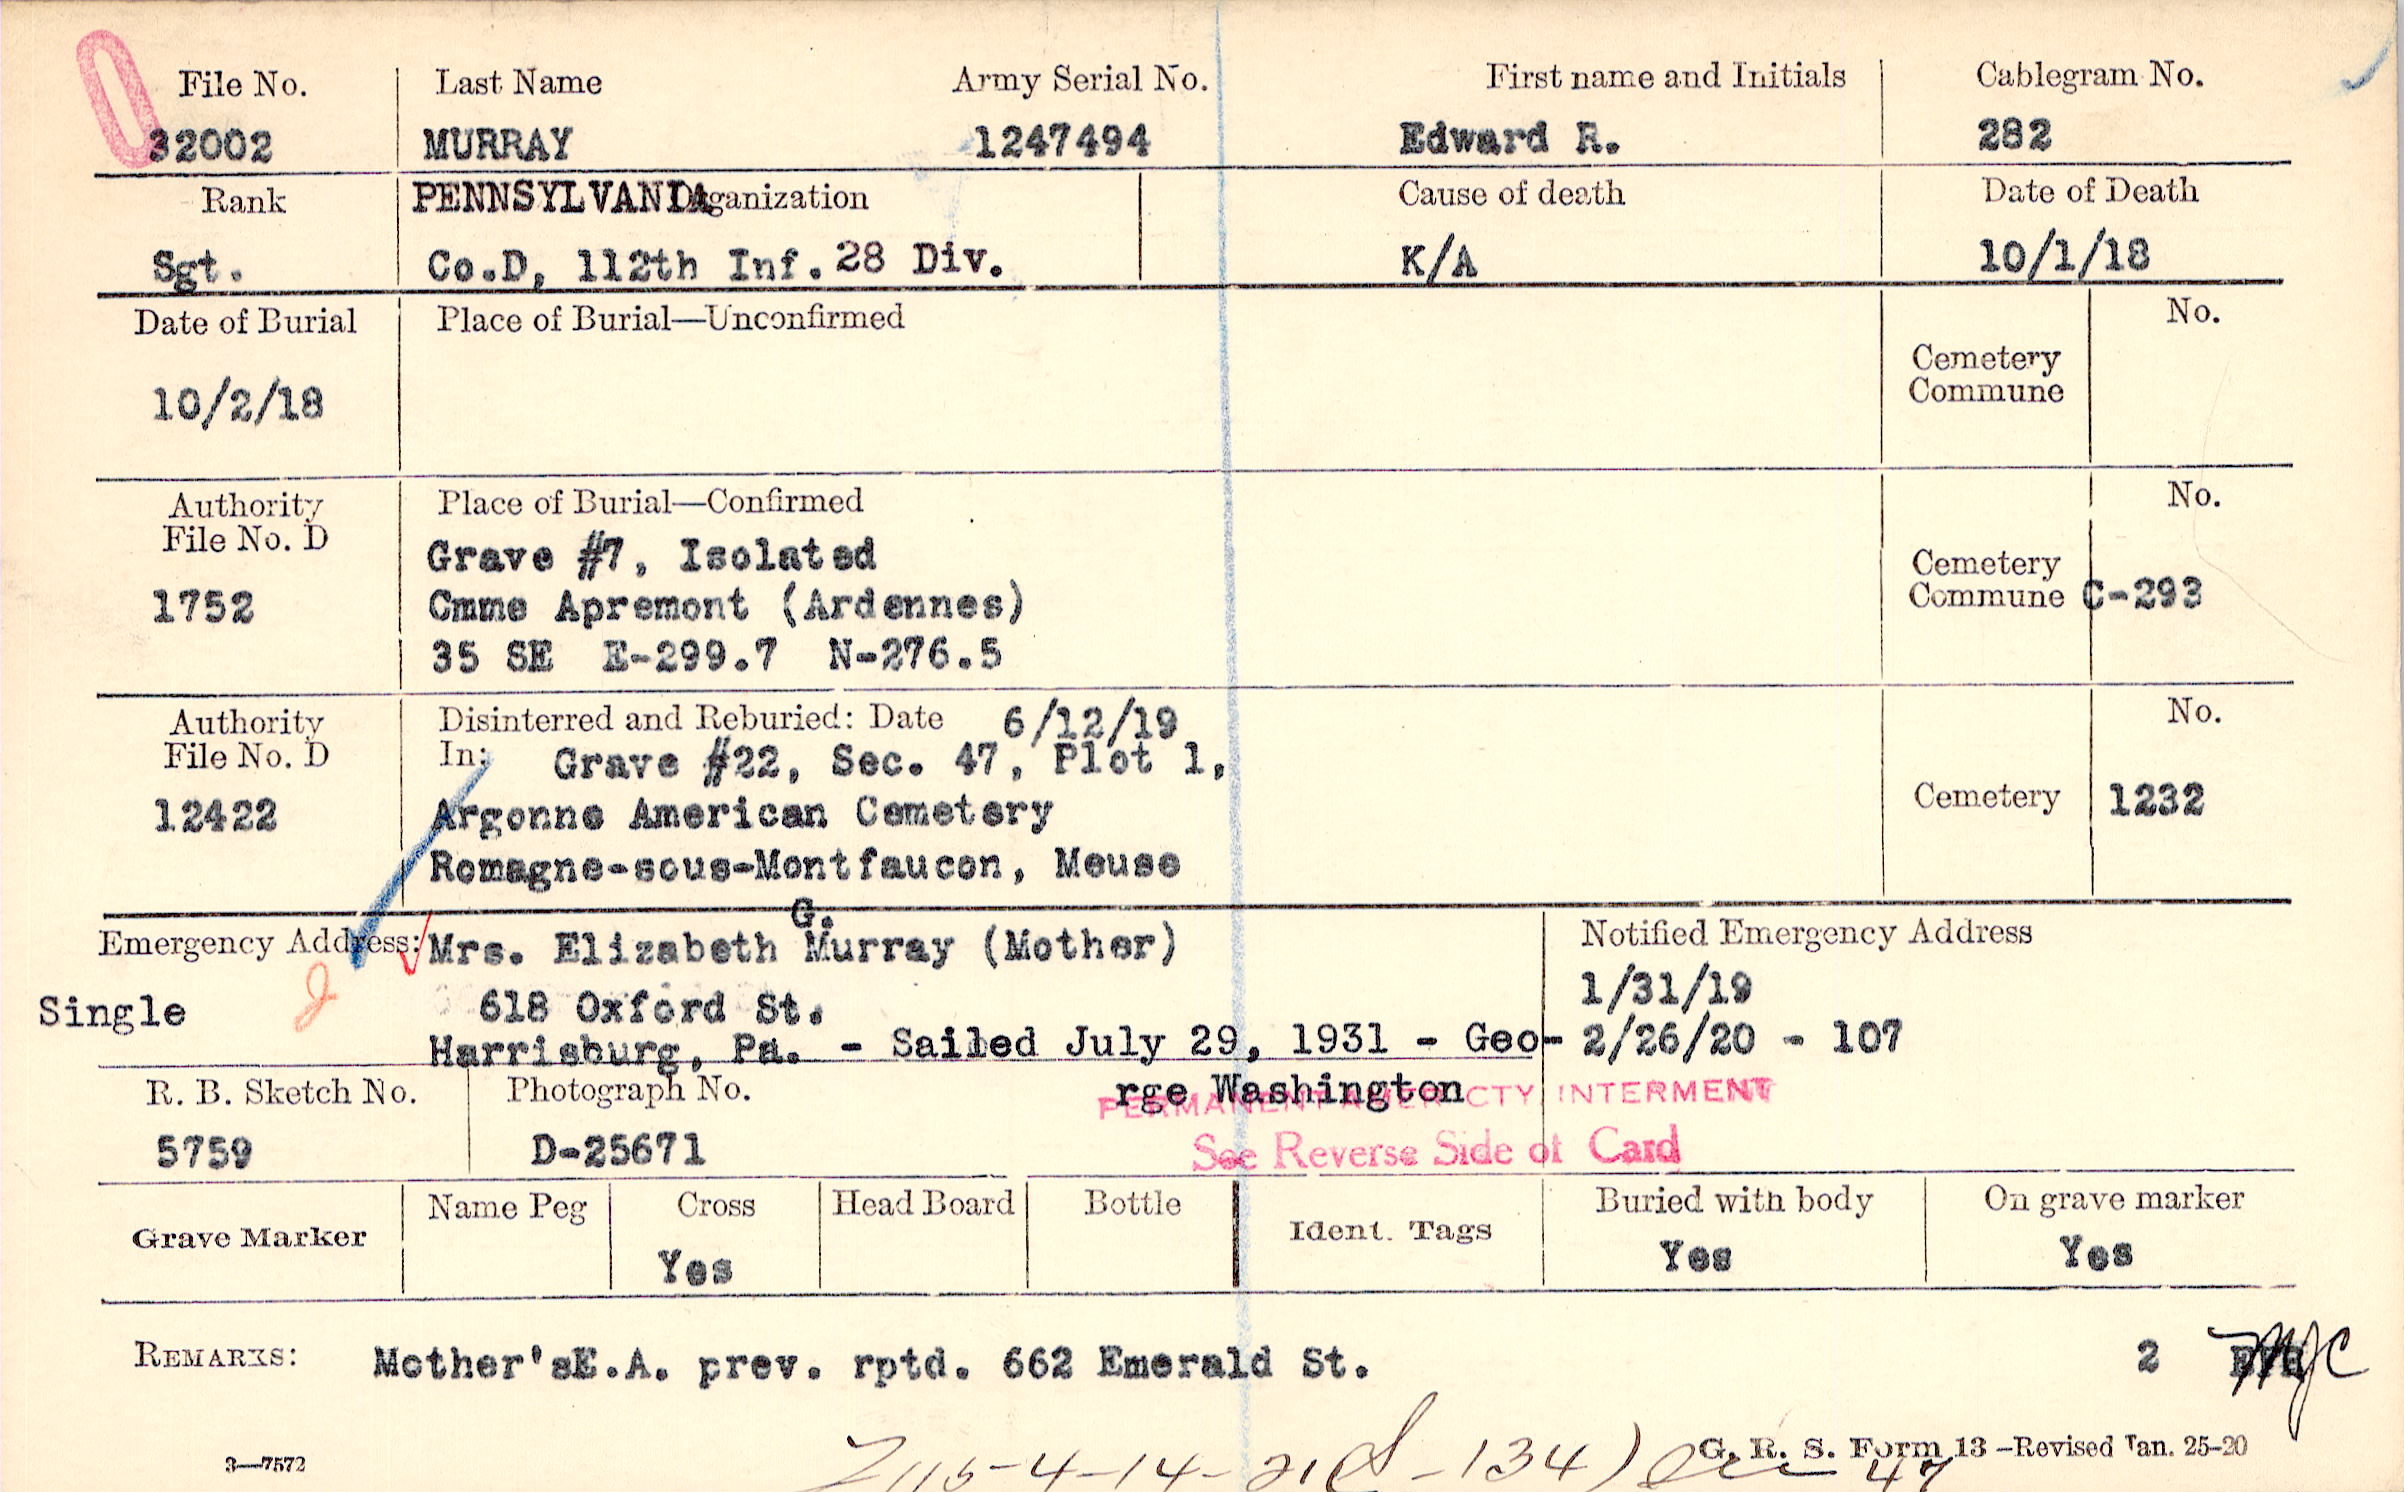 File No. Last Name Army Serial No. First name and Initials Cablegram No.
32002 MURRAY 1247494 Edward R. 282
Rank PENNSYLVANIA Organization Cause of death Date of Death
Sgt. Co.D, 112th Inf. 28 Div. K/A 10/1/18
Date of Burial Place of Burial—Unconfirmed No.
Cemetery
Commune
10/2/18
Authority Place of Burial—Confirmed No.
File No. D
Grave #7, Isolated
Cemetery
1752 Cmme Apremont (Ardennes) Commune C-293
35 SE E-299.7 N-276.5
Authority Disinterred and Reburied: Date 6/12/19 No.
File No. D In: Grave #22, Sec. 47, Plot 1,
12422 Argonne American Cemetery Cemetery 1232
Romagne-sous-Montfaucon, Meuse
G.
Emergency Address: Mrs. Elizabeth Murray (Mother) Notified Emergency Address
Single 618 Oxford St. 1/31/19
Harrisburg, Pa. - Sailed July 29, 1931 - Geo- 2/26/20 - 107
R. B. Sketch No. Photograph No. rge Washington
PERMANENT AMER CTY INTERMENT
5759 D-25671 See Reverse Side of Card
Grave Marker Name Peg Cross Head Board Bottle Ident. Tags Buried with body On grave marker
Yes Yes Yes
REMARKS: Mother'sE.A. prev. rptd. 662 Emerald St. 2 MJC
3—7572 G. R. S. Form 13 —Revised Jan. 25-20